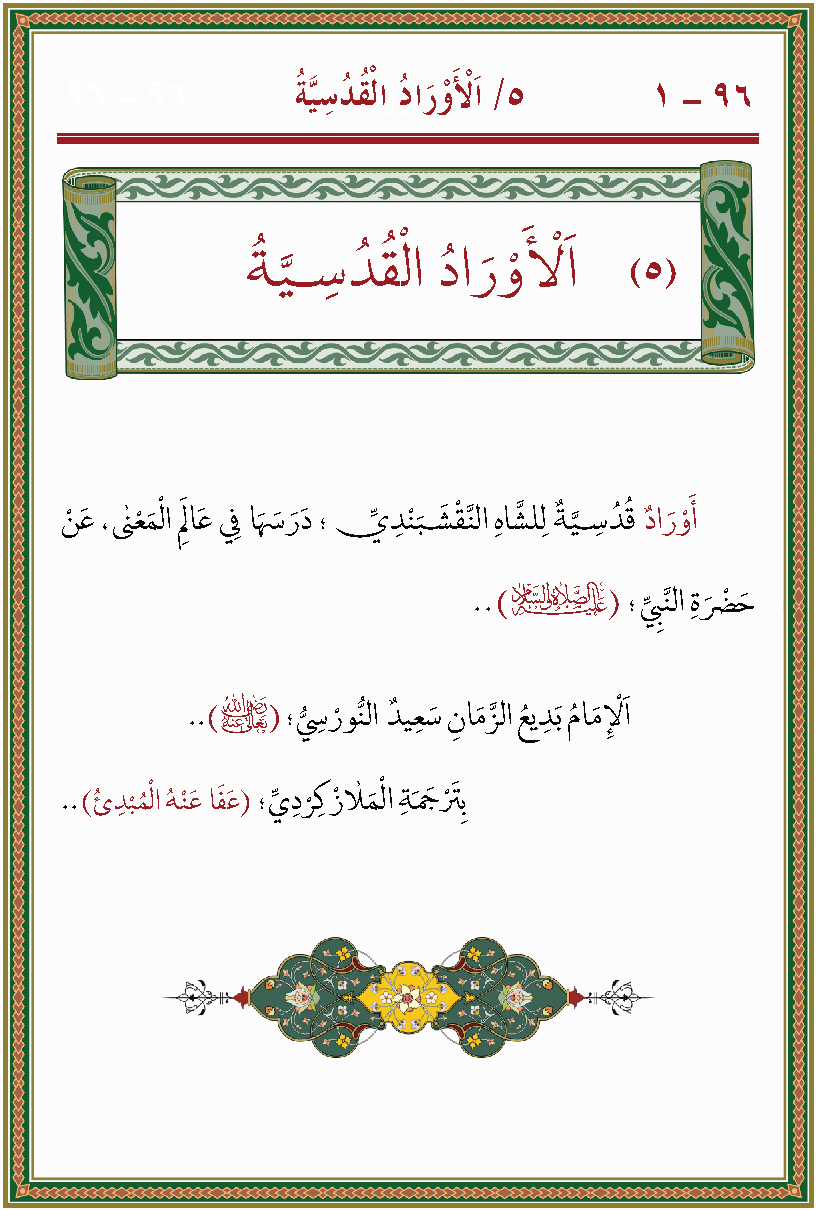 ٩٦ – ١ ٥/ اَلْأَوْرَادُ الْقُدُسِيَّةُ ٩٦ – ٩٦
(٥) اَلْأَوْرَادُ الْقُدُسِـيَّةُ
أَوْرَادٌ قُدُسِـيَّةٌ لِلشَّاهِ النَّقْشَـبَنْدِيِّ ؛ دَرَسَهَا فِي عَالَمِ الْمَعْنٰى، عَنْ
حَضْرَةِ النَّبِيِّ؛ (عَلَيْهِ الصَّلَاةُ وَالسَّلَامُ)..
اَلْإِمَامُ بَدِيعُ الزَّمَانِ سَعِيدٌ النُّورْسِيُّ؛ (رَضِيَ اللهُ تَعَالٰى عَنْهُ)..
بِتَرْجَمَةِ الْمَلَازْكِرْدِيِّ؛ (عَفَا عَنْهُ الْمُبْدِئُ)..